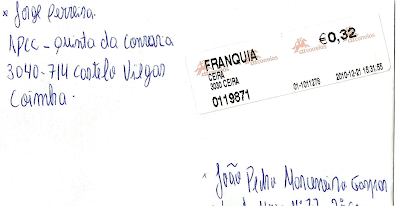 * Jorge Ferreira.
APCC - quinta da conraria
3040-714 Castelo Viegas
Coimbra.
FRANQUIA
CEIRA
3030 CEIRA
0119871
€0,32
correios
01-1011278 2010-12-21 15:31:55
João Pedro